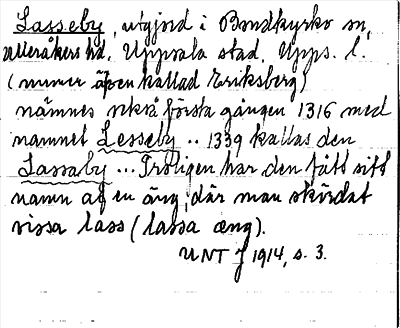 Lasseby, utgjord i Bondkyrko sn,
Ulleråkers hd, Uppsala stad, Upps. l.
(numer äfven kallad Eriksberg)
nämnes också första gången 1316 med
namnet Lesseby .. 1339 kallas den
Lassaby ... Troligen har den fått sitt
namn af en äng, där man skördat
vissa lass (lassa æng).
UNT 1914, s. 3.